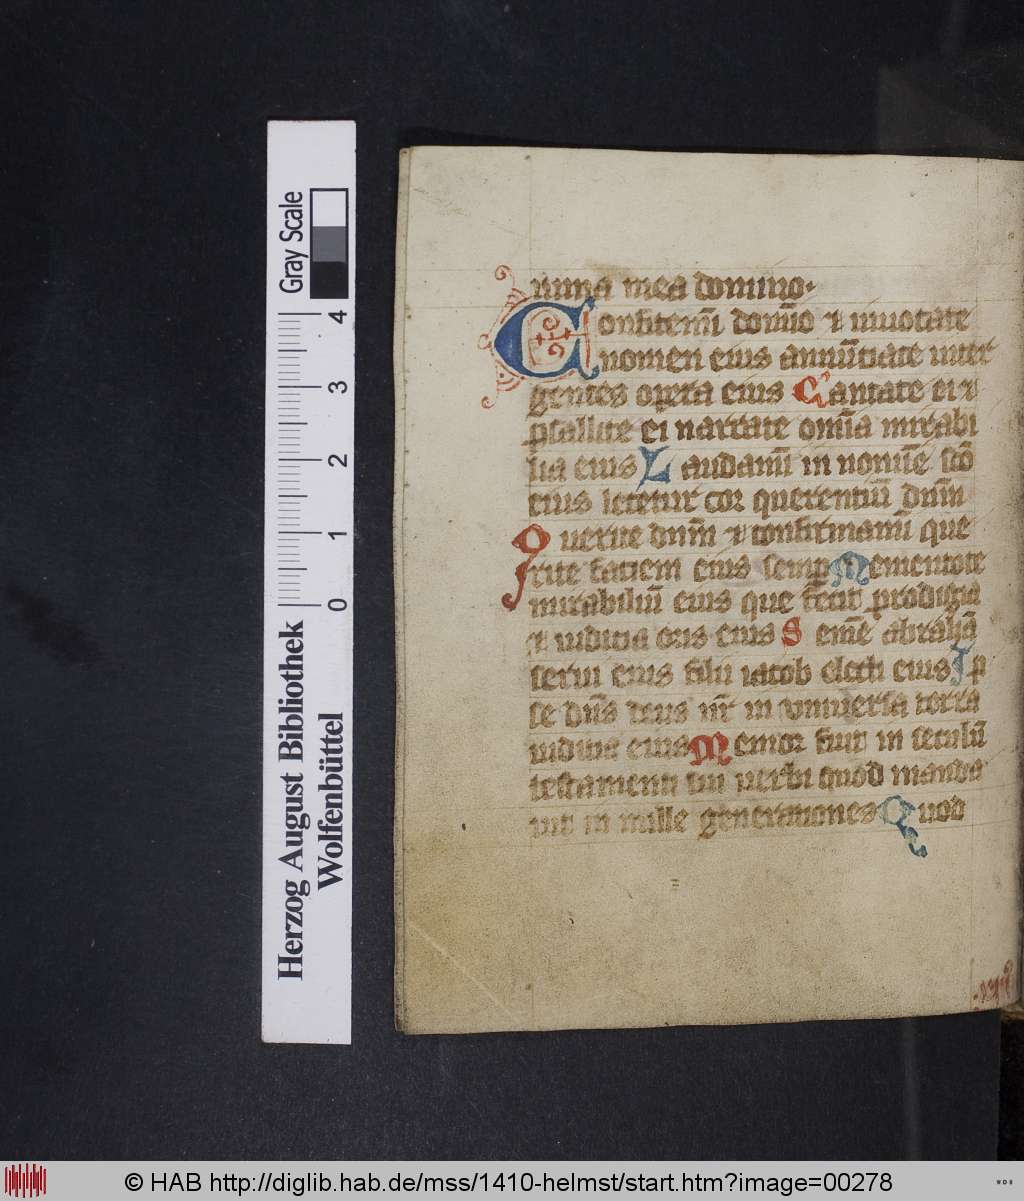 anima mea domino·
Confitemī domīo ⁊ inuocate
nomen eius annūtiate inter
gentes opera eius Cantate ei ⁊
psallite ei narrate omīa mirabi
lia eius Laudamī in nomīe scō
eius letetur cor querentiū dnm̄
Querite dnm̄ ⁊ confirmamī que
rite faciem eius semp Mementote
mirabiliū eius que fecit prodigia
⁊ iudicia oris eius Semē abrahā
serui eius filii iacob electi eius Ip
se dn̄s deus nr̄ in vniuersa terra
iudicia eius Memor fuit in seculū
testamenti sui uerbi quod manda
uit in mille generationes Quod
Gray Scale
4
3
2
1
0
Herzog August Bibliothek
Wolfenbüttel
© HAB http://diglib.hab.de/mss/1410-helmst/start.htm?image=00278